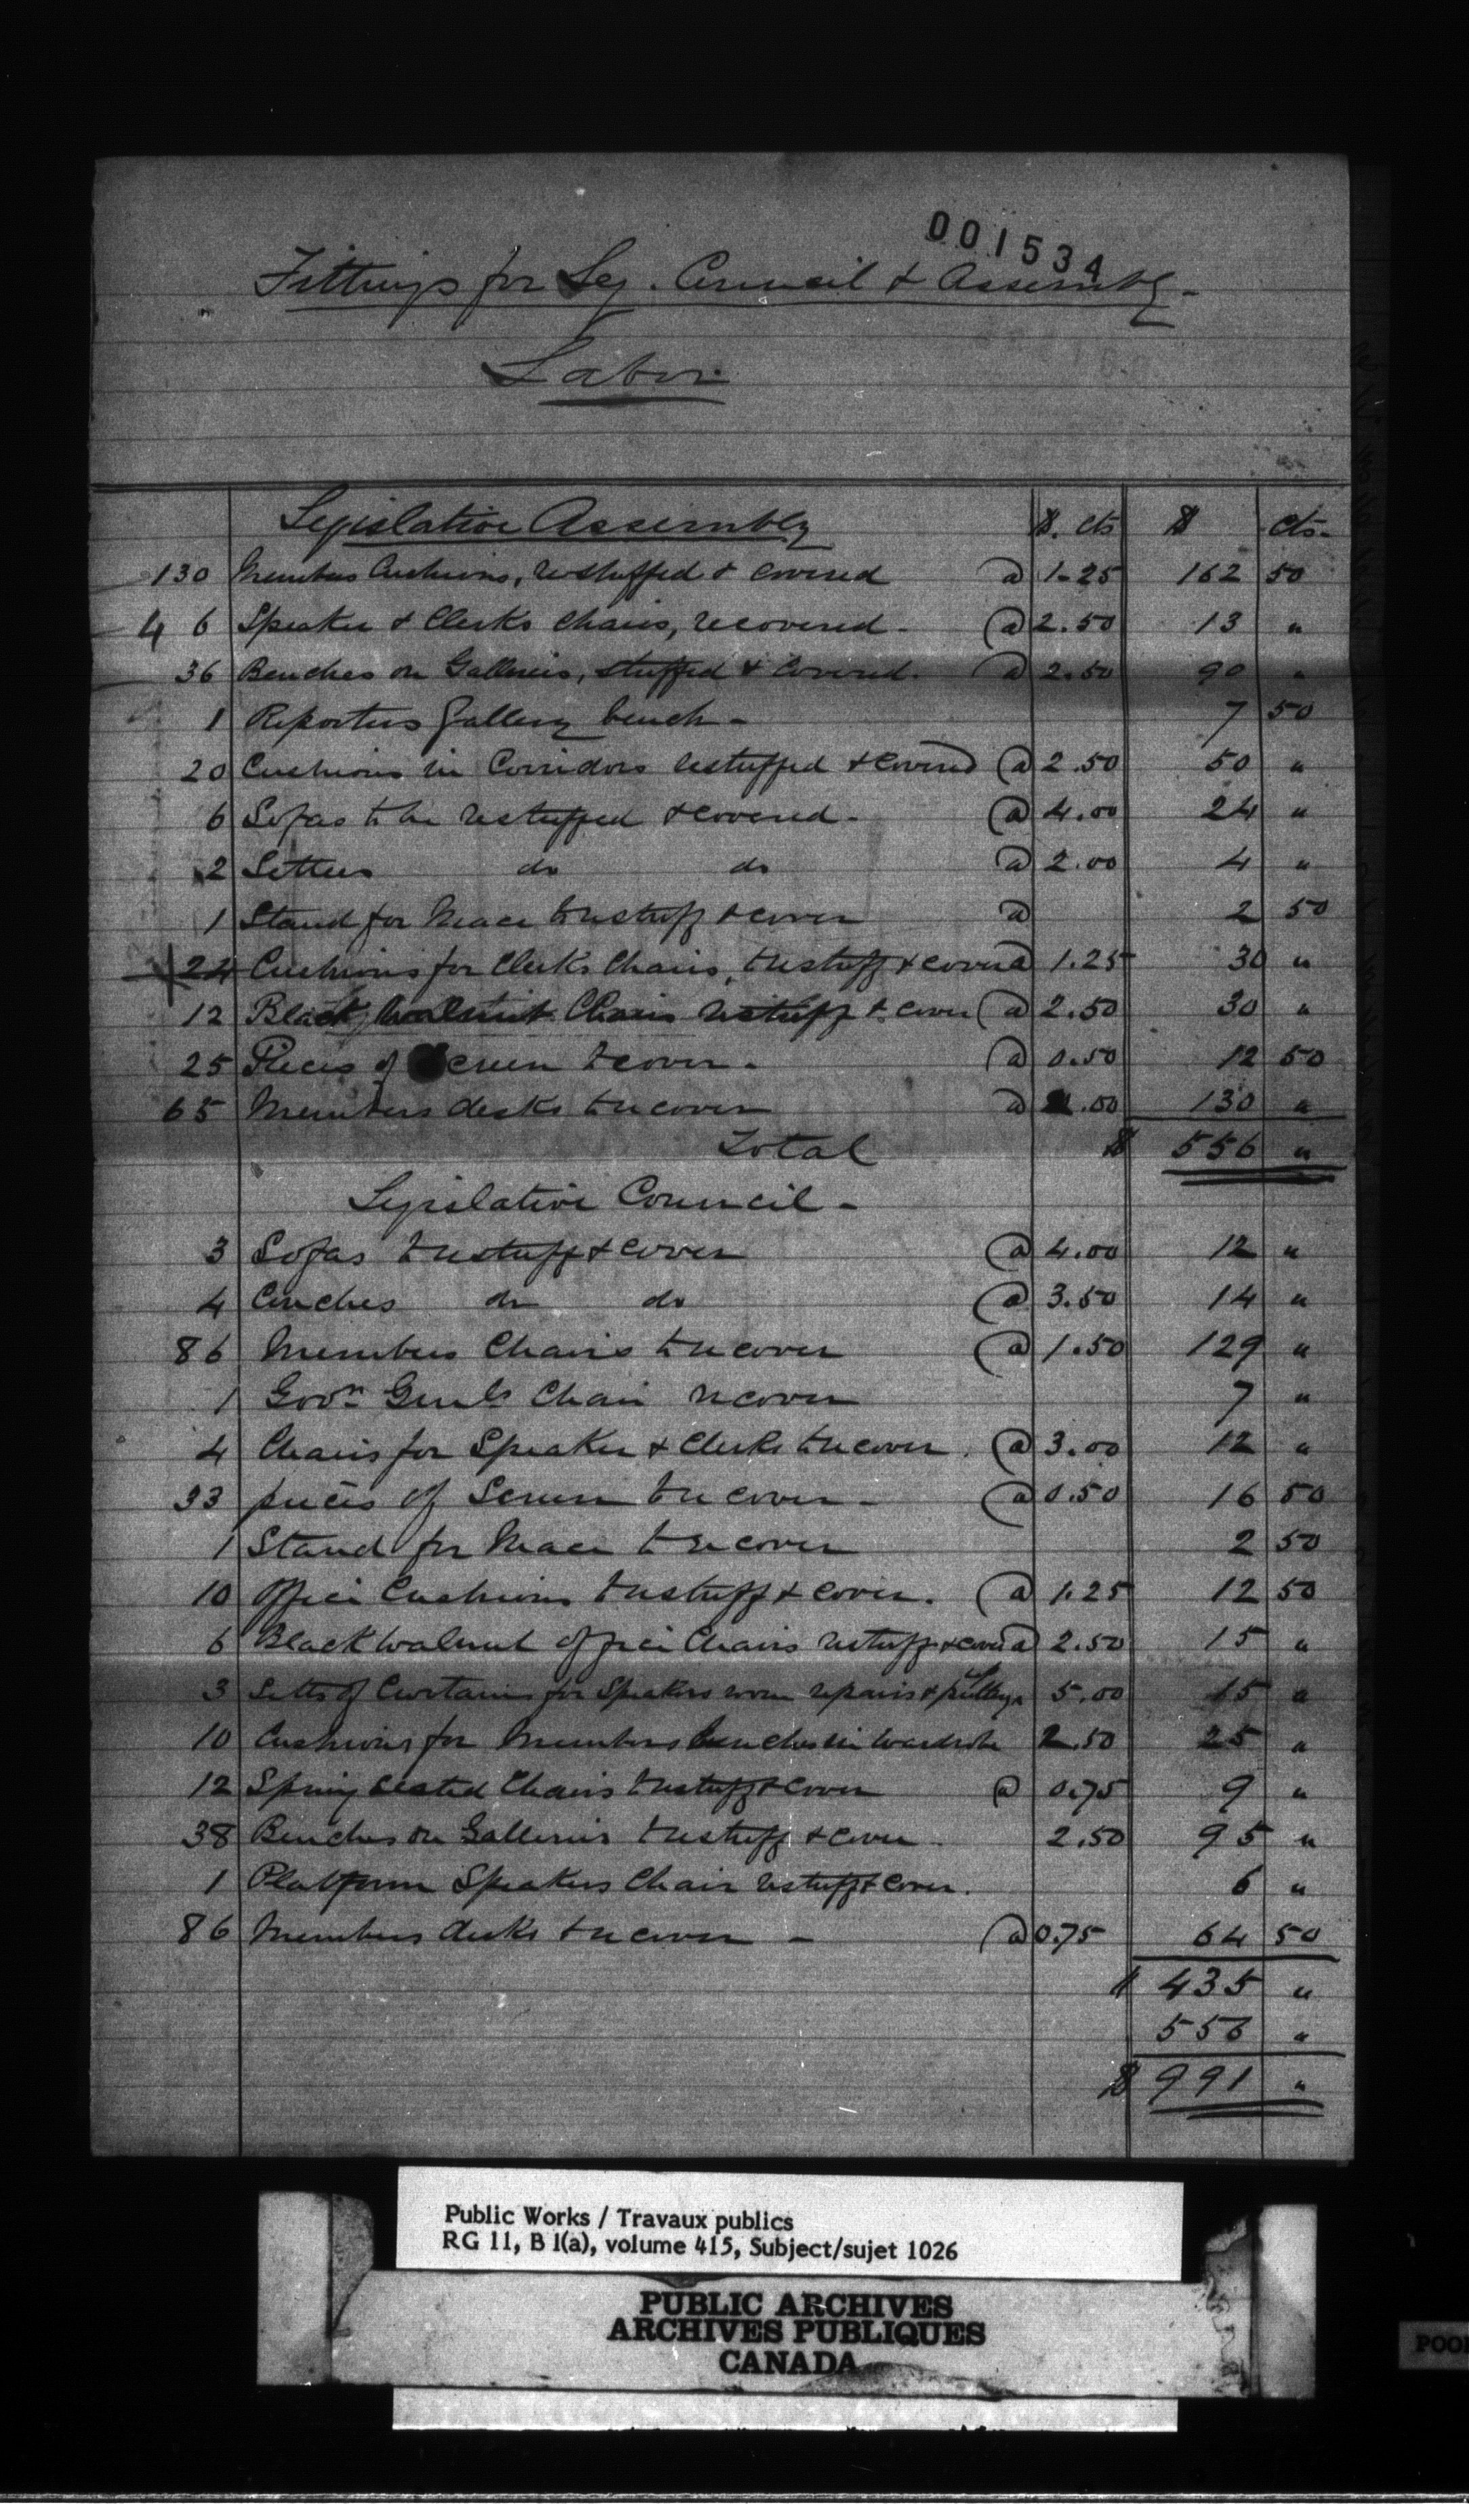 001534
Fittings for Leg. Council & Assembly -
Labor
Legislative Assembly $. cts $ cts.
130 Members Cushions, restuffed & covered @ 1.25 162 50
4 6 Speaker & Clerks Chairs, recovered - @ 2.50 13 "
36 Benches on Galleries, stuffed & Covered. @ 2.50 90 "
1 Reporters Gallery bench - 7 50
20 Cushions in Corridors restuffed & covered @ 2.50 50 "
6 Sofas to be restuffed & covered - @ 4.00 24 "
2 Settees do do @ 2.00 4 "
1 Stand for Mace to restuff & cover @ 2 50
24 Cushions for Clerks Chairs, to restuff & cover @ 1.25 30 "
12 Black Walnut Chairs restuff & cover @ 2.50 30 "
25 Pieces of Screen to cover - @ 0.50 12 50
65 Members desks to recover @ 2.00 130 "
Total $ 556 "
Legislative Council -
3 Sofas to restuff & cover @ 4.00 12 "
4 Couches do do @ 3.50 14 "
86 Members Chairs to recover @ 1.50 129 "
1 Govr Genls Chair recover 7 "
4 Chairs for Speaker & Clerks to recover. @ 3.00 12 "
33 pieces of Screen to recover - @ 0.50 16 50
1 Stand for Mace to recover 2 50
10 Office Cushions to restuff & cover. @ 1.25 12 50
6 Black walnut office Chairs restuff & cover @ 2.50 15 "
3 Setts of Curtains for Speakers room repairs & 5.00 15 "
10 Cushions for Members benches in wardrobe 2.50 25 "
12 Spring seated Chairs to restuff & cover @ 0.75 9 "
38 Benches on Galleries to restuff & cover - 2.50 95 "
1 Platform Speakers Chair restuff & cover. 6 "
86 Members desks to recover - @ 0.75 64 50
$ 435 "
556 "
$ 991 "
Public Works / Travaux publics
RG 11, B 1(a), volume 415, Subject/sujet 1026
PUBLIC ARCHIVES
ARCHIVES PUBLIQUES
CANADA